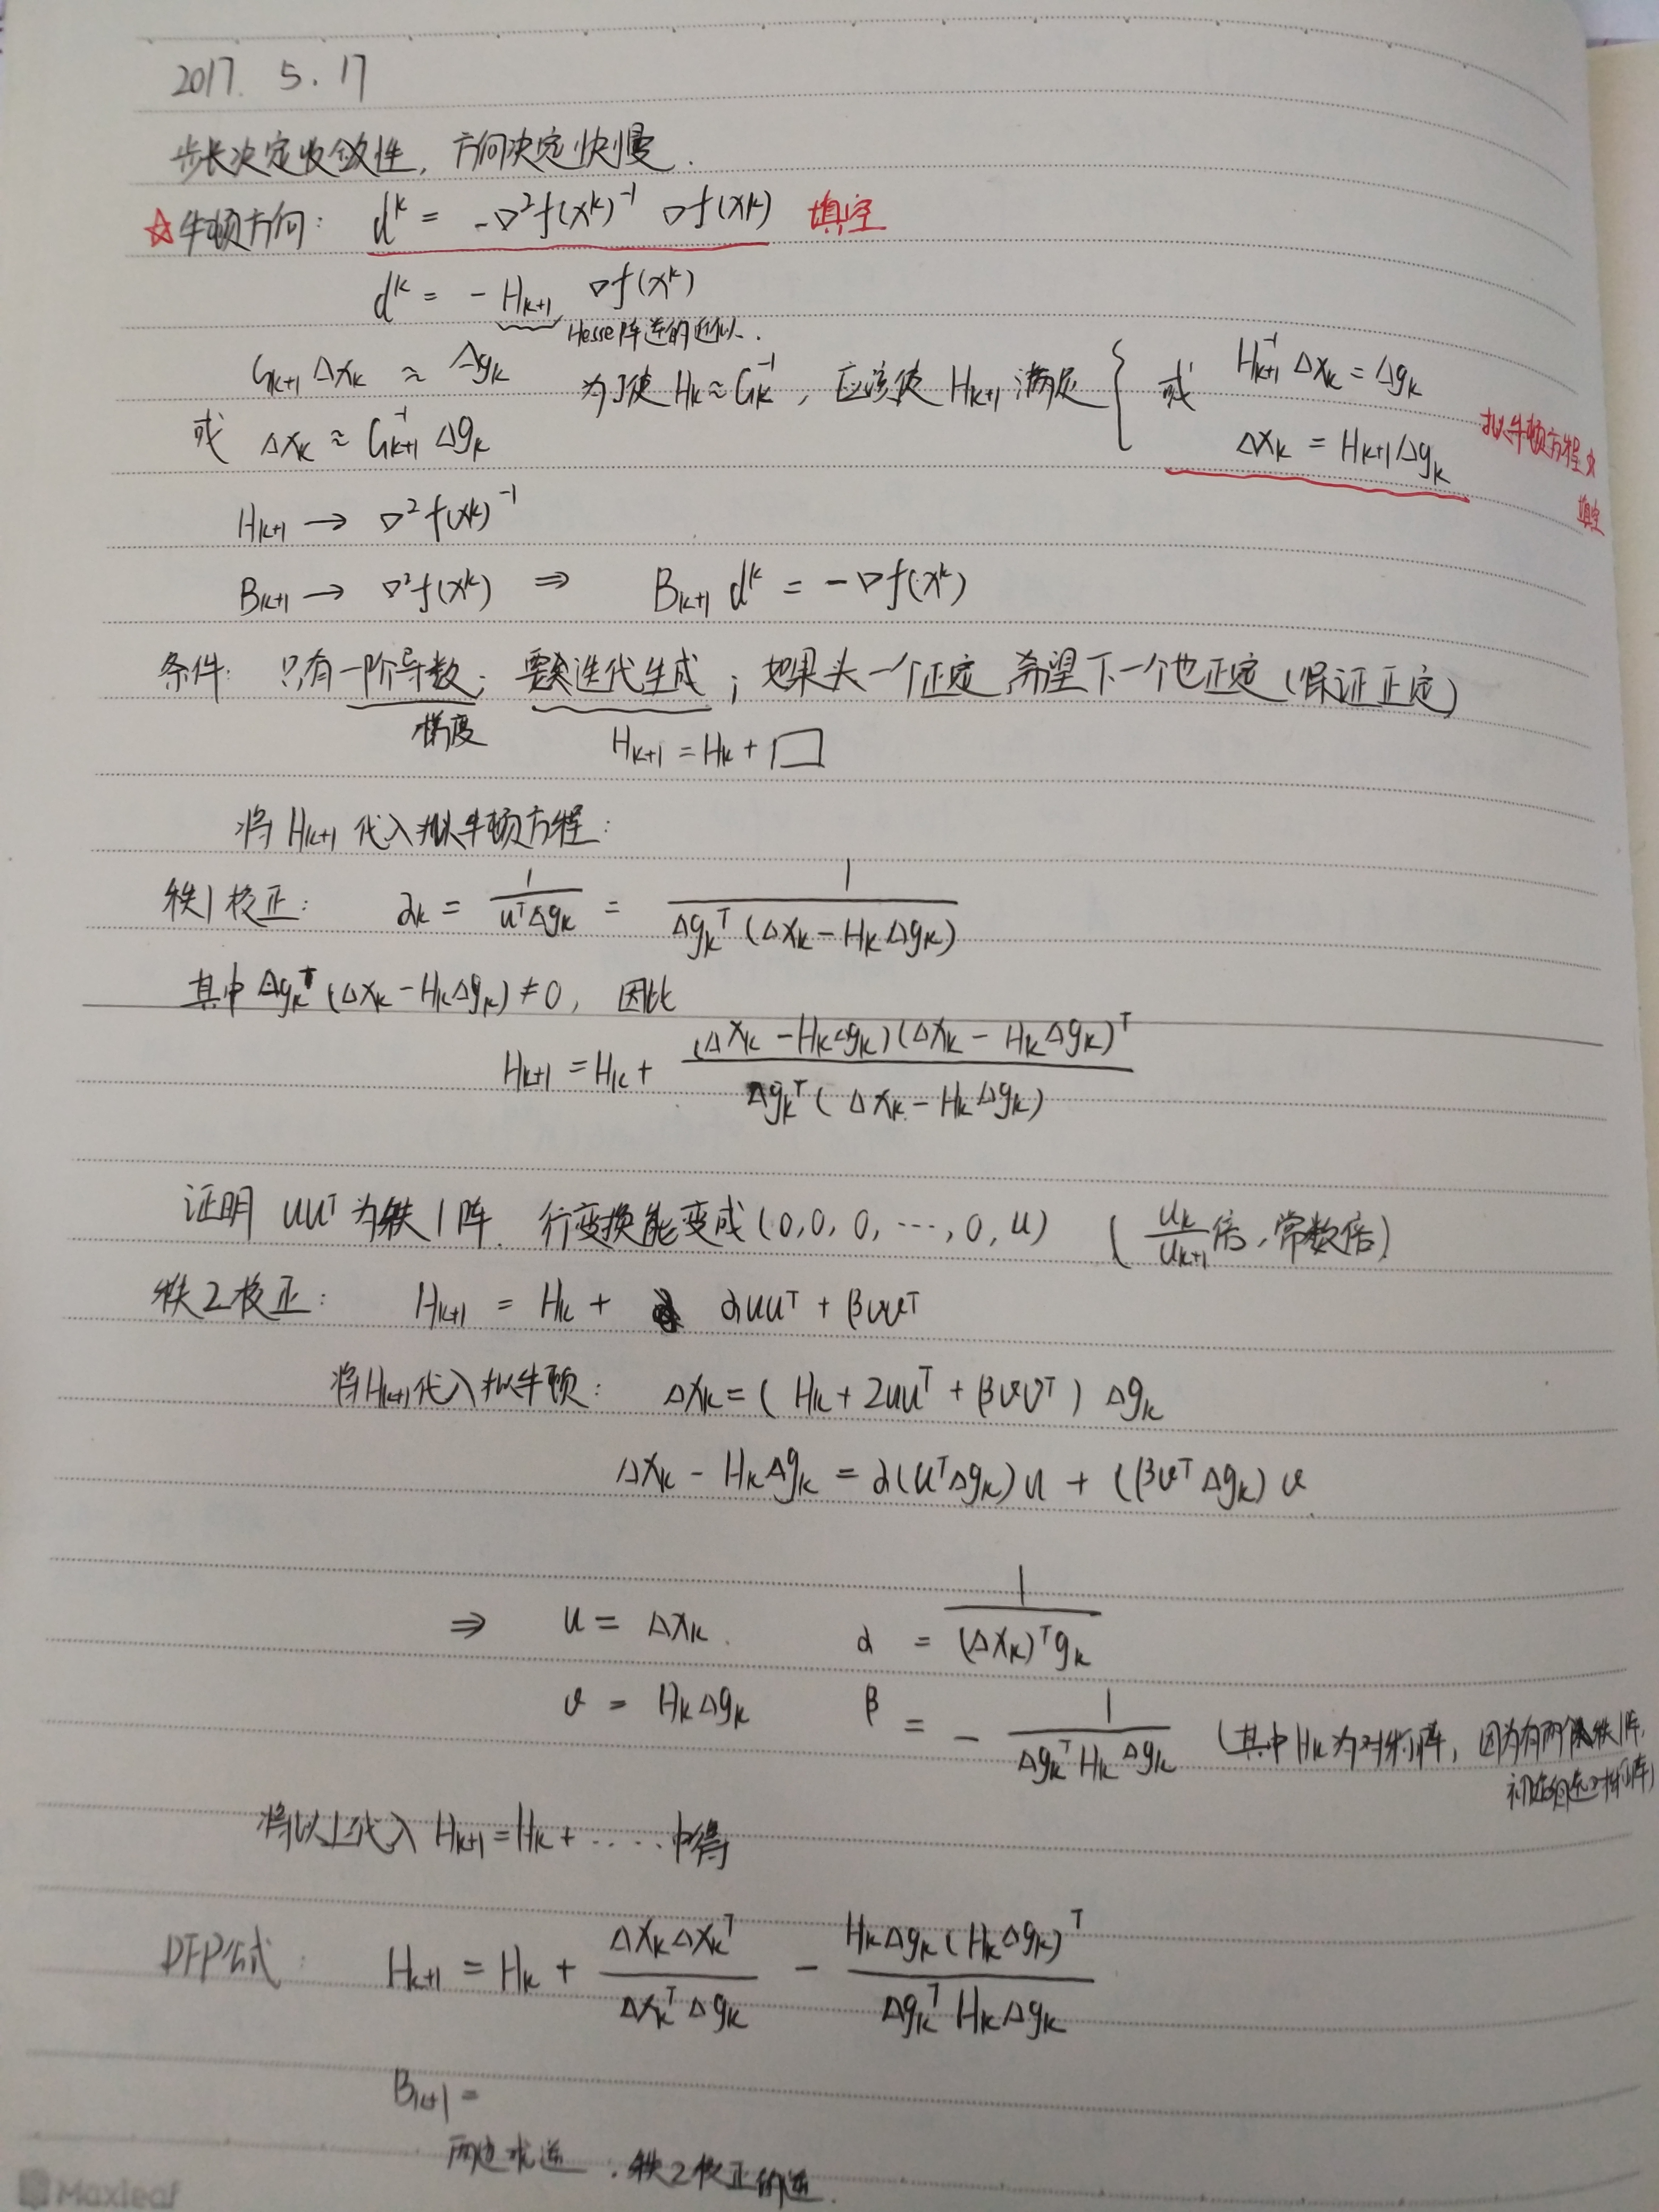 2017. 5. 17
步长决定收敛性, 方向决定快慢.
☆牛顿方向: d^k = -∇²f(x^k)^{-1} ∇f(x^k) 填空
d^k = - H_{k+1} ∇f(x^k)
Hesse阵逆的近似.
G_{k+1} Δx_k ≈ Δg_k
或 Δx_k ≈ G_{k+1}^{-1} Δg_k
为了使 H_k ≈ G_k^{-1}, 应该使 H_{k+1} 满足 { 或 H_{k+1}^{-1} Δx_k = Δg_k
Δx_k = H_{k+1} Δg_k
拟牛顿方程☆
填空
H_{k+1} → ∇²f(x^k)^{-1}
B_{k+1} → ∇²f(x^k) ⇒ B_{k+1} d^k = -∇f(x^k)
条件: 只有一阶导数; 要求迭代生成; 如果头一个正定 希望下一个也正定 (保证正定)
梯度 H_{k+1} = H_k + □
将 H_{k+1} 代入拟牛顿方程:
秩1校正: α_k = 1/(u^T Δg_k) = 1/(Δg_k^T (Δx_k - H_k Δg_k))
其中 Δg_k^T (Δx_k - H_k Δg_k) ≠ 0, 因此
H_{k+1} = H_k + (Δx_k - H_k Δg_k)(Δx_k - H_k Δg_k)^T / (Δg_k^T (Δx_k - H_k Δg_k))
证明 uu^T 为秩1阵. 行变换能变成 (0, 0, 0, ..., 0, u) (u_k/u_{k+1} 倍, 常数倍)
秩2校正: H_{k+1} = H_k + αuu^T + βvv^T
将H_{k+1}代入拟牛顿: Δx_k = (H_k + 2uu^T + βvv^T) Δg_k
Δx_k - H_k Δg_k = α(u^T Δg_k) u + (βv^T Δg_k) v
⇒ u = Δx_k. α = 1/((Δx_k)^T g_k)
v = H_k Δg_k β = - 1/(Δg_k^T H_k Δg_k) (其中 H_k 为对称阵, 因为有两个秩1阵,
对称阵)
将以上代入 H_{k+1} = H_k + ..... 中得
DFP公式: H_{k+1} = H_k + Δx_k Δx_k^T / (Δx_k^T Δg_k) - H_k Δg_k (H_k Δg_k)^T / (Δg_k^T H_k Δg_k)
B_{k+1} =
两边求逆. 秩2校正的逆.
Maxleaf